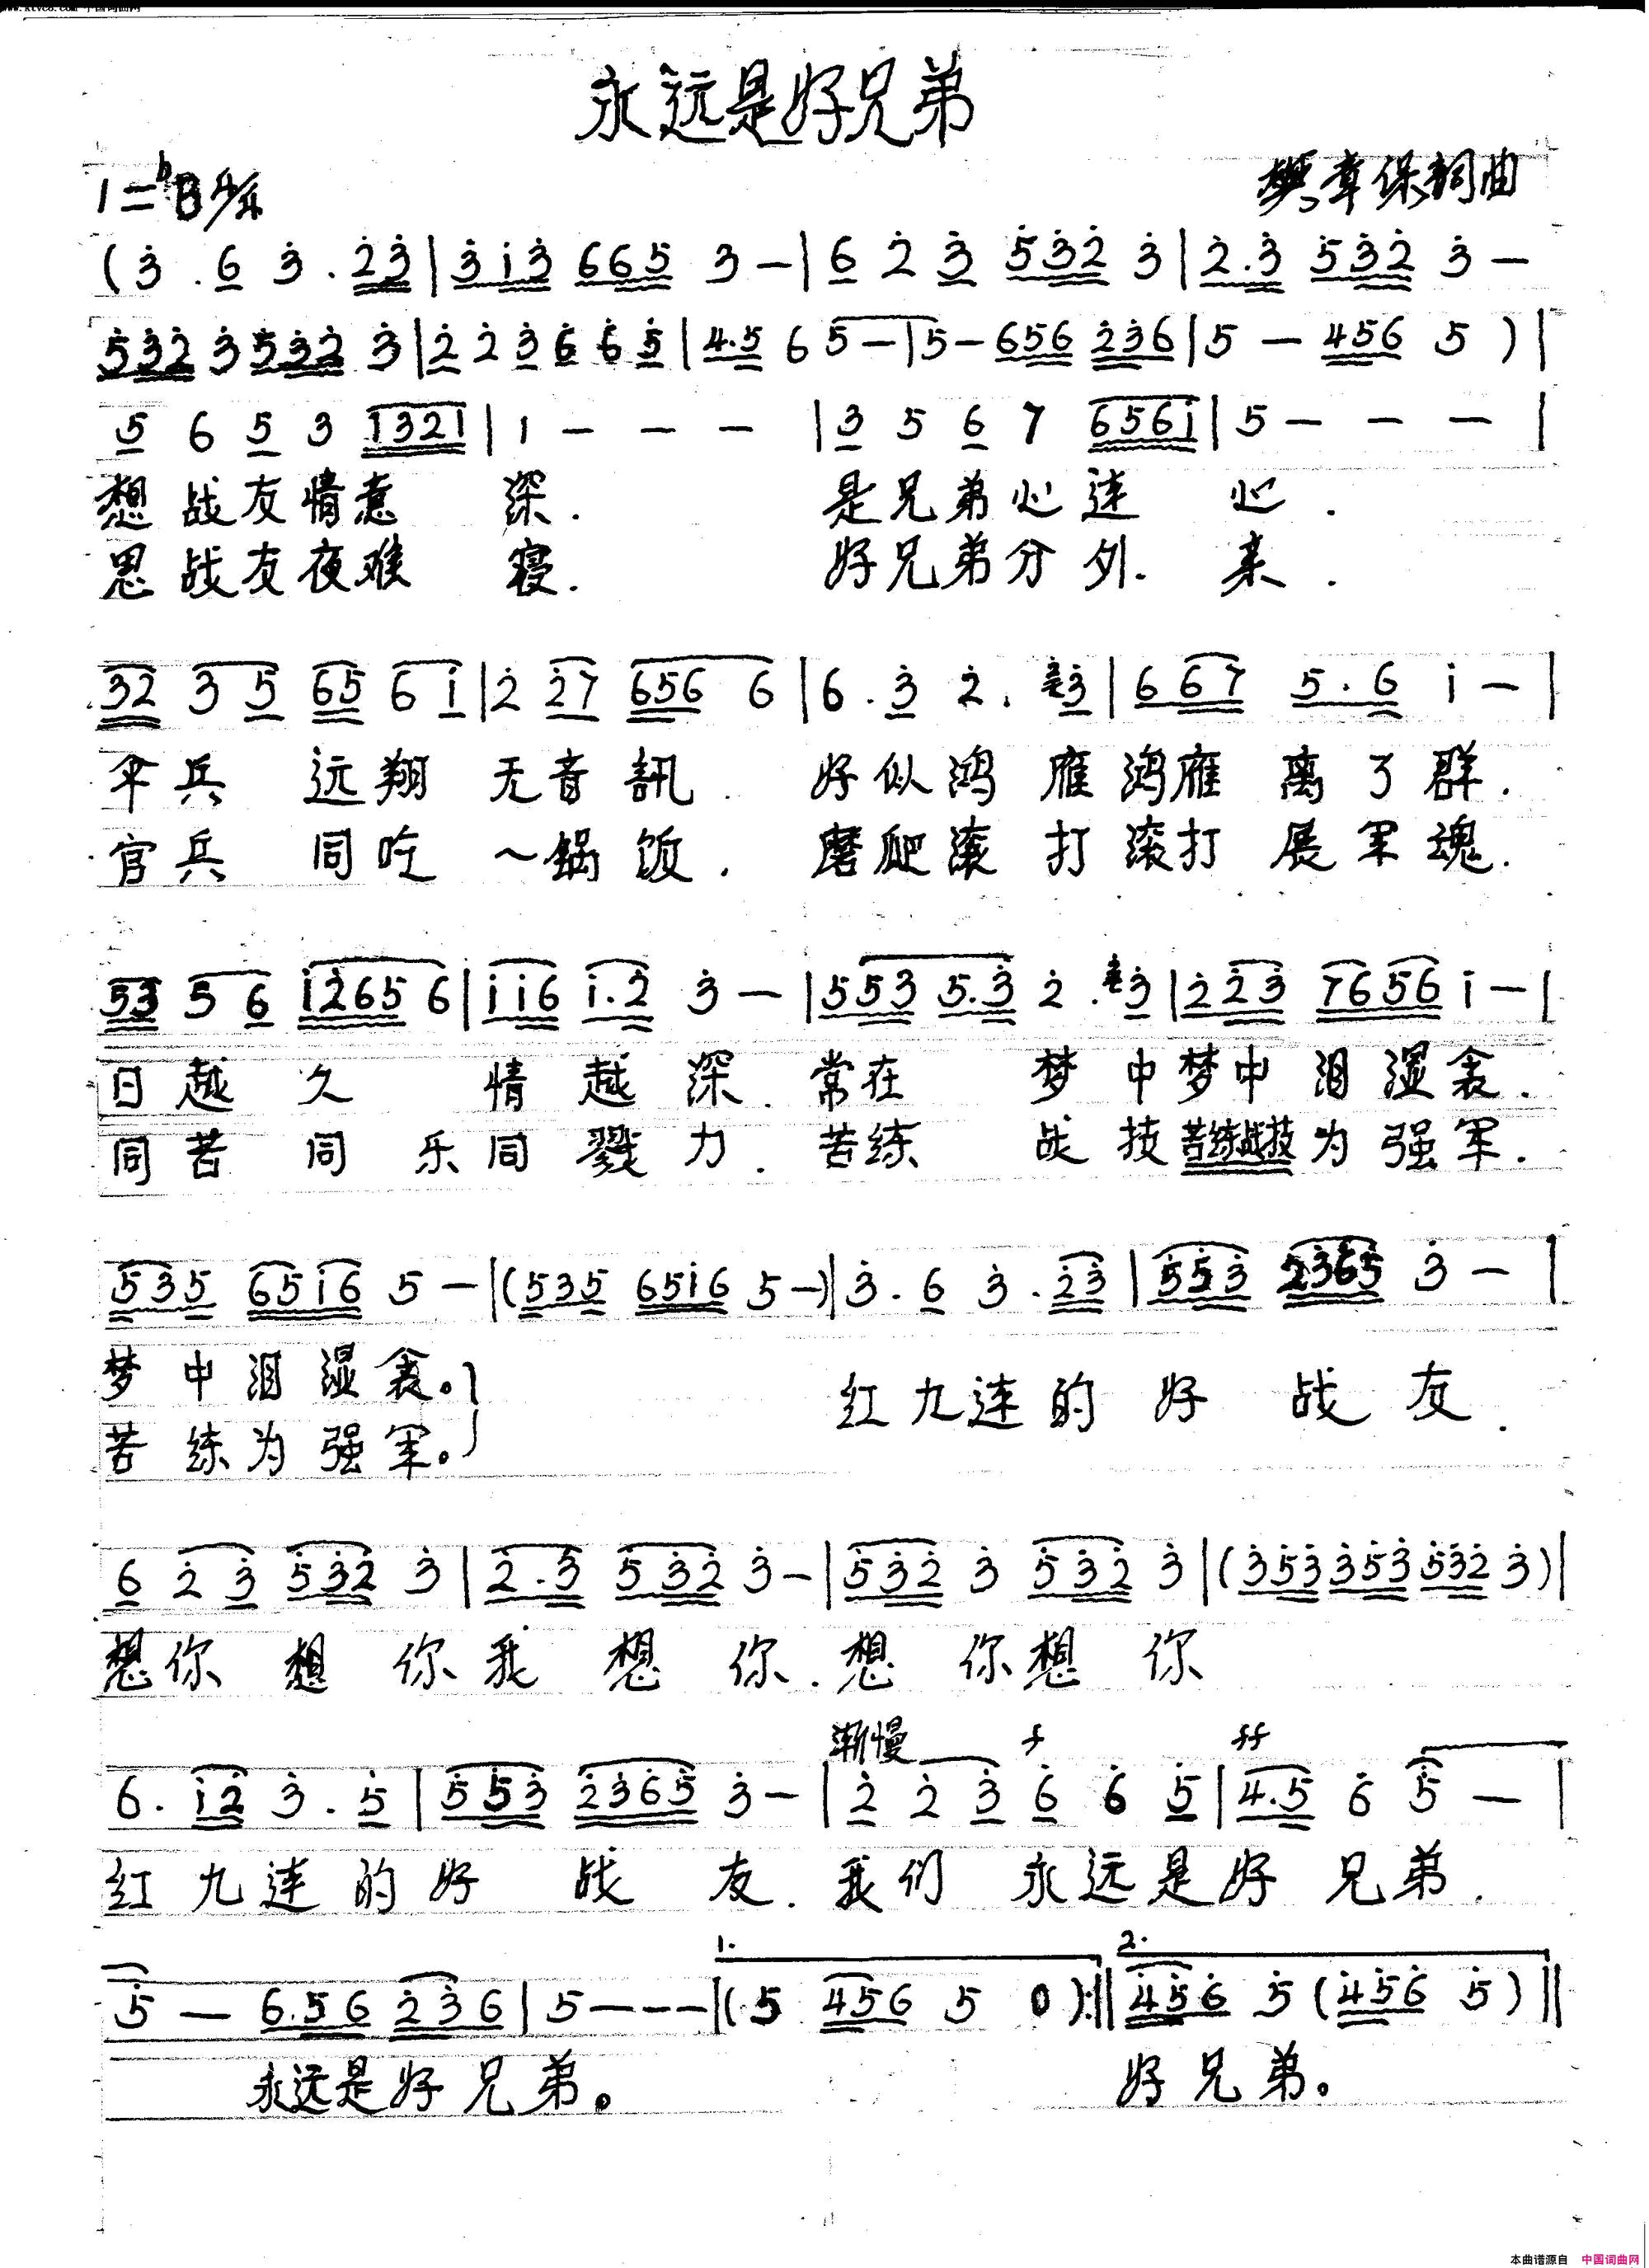 www.ktvc8.com 中国词曲网
永远是好兄弟
1=♭B 4/4
章保词曲
(3̇ . 6 3̇ . 2̇3̇ | 3̇ i 3̇ 6 6 5 3 — | 6 2̇ 3̇ 5̇3̇2̇ 3̇ | 2̇.3̇ 5̇3̇2̇ 3̇ —
5̇3̇2̇ 3̇ 5̇3̇2̇ 3̇ | 2̇ 2̇ 3̇ 6̇ 6̇ 5̇ | 4.5 6 5 — | 5 — 656 2̇3̇6 | 5 — 456 5 ) |
5 6 5 3 1321 | 1 — — — | 3 5 6 7 656i | 5 — — — |
想战友情意 深. 是兄弟心连 心.
思战友夜难 寝. 好兄弟分外. 亲.
32 3 5 65 6 i | 2̇ 2̇7 656 6 | 6 . 3̇ 2̇ . 3̇ | 6 67 5 . 6 i — |
伞兵 远翔 无音訊. 好似鸿 雁鸿雁 离了群.
官兵 同吃 一锅饭. 磨爬滚 打滚打 展军魂.
53 5 6 i2̇65 6 | i i6 i.2̇ 3̇ — | 5̇5̇3̇ 5̇.3̇ 2̇ . 3̇ | 2̇ 2̇3̇ 7656 i — |
日越 久 情越深. 常在 梦中梦中泪湿衾.
同苦 同 乐同戮力. 苦练 战技苦练战技为强军.
535 65i6 5 — | (535 65i6 5 —) | 3̇ . 6 3̇ . 2̇3̇ | 5̇5̇3̇ 2̇3̇6̇5̇ 3̇ — |
梦中泪湿衾。 红九连的好 战友.
苦练为强军。
6 2̇ 3̇ 5̇3̇2̇ 3̇ | 2̇ . 3̇ 5̇3̇2̇ 3̇ — | 5̇3̇2̇ 3̇ 5̇3̇2̇ 3̇ | (3̇5̇3̇ 3̇5̇3̇ 5̇3̇2̇ 3̇) |
想你 想 你我 想 你. 想 你想 你
渐慢 f ff
6 . i2̇ 3̇ . 5̇ | 5̇5̇3̇ 2̇3̇6̇5̇ 3̇ — | 2̇ 2̇ 3̇ 6̇ 6̇ 5̇ | 4̇.5̇ 6̇ 5̇ — |
红九连的好 战 友. 我们 永远是好 兄弟.
1. 2.
5̇ — 6.56 2̇3̇6 | 5 — — — | (5 456 5 0) :|| 4̇5̇6̇ 5̇ (4̇5̇6̇ 5̇) ||
永远是好兄弟。 好兄弟。
本曲谱源自 中国词曲网